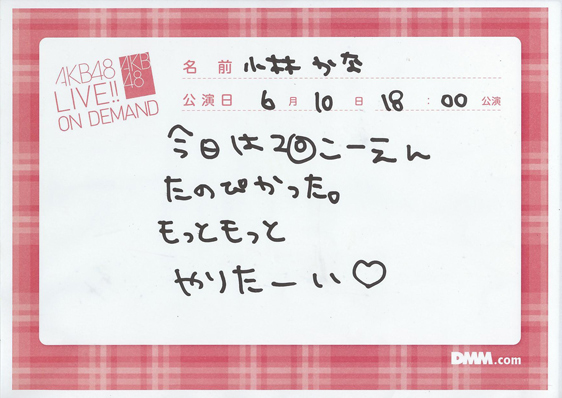 AKB48
LIVE!!
ON DEMAND
AKB
48
名前 小林かな
公演日 6月10日 18:00公演
今日は2回こーえん
たのぴかった。
もっともっと
やりたーい♡
DMM.com